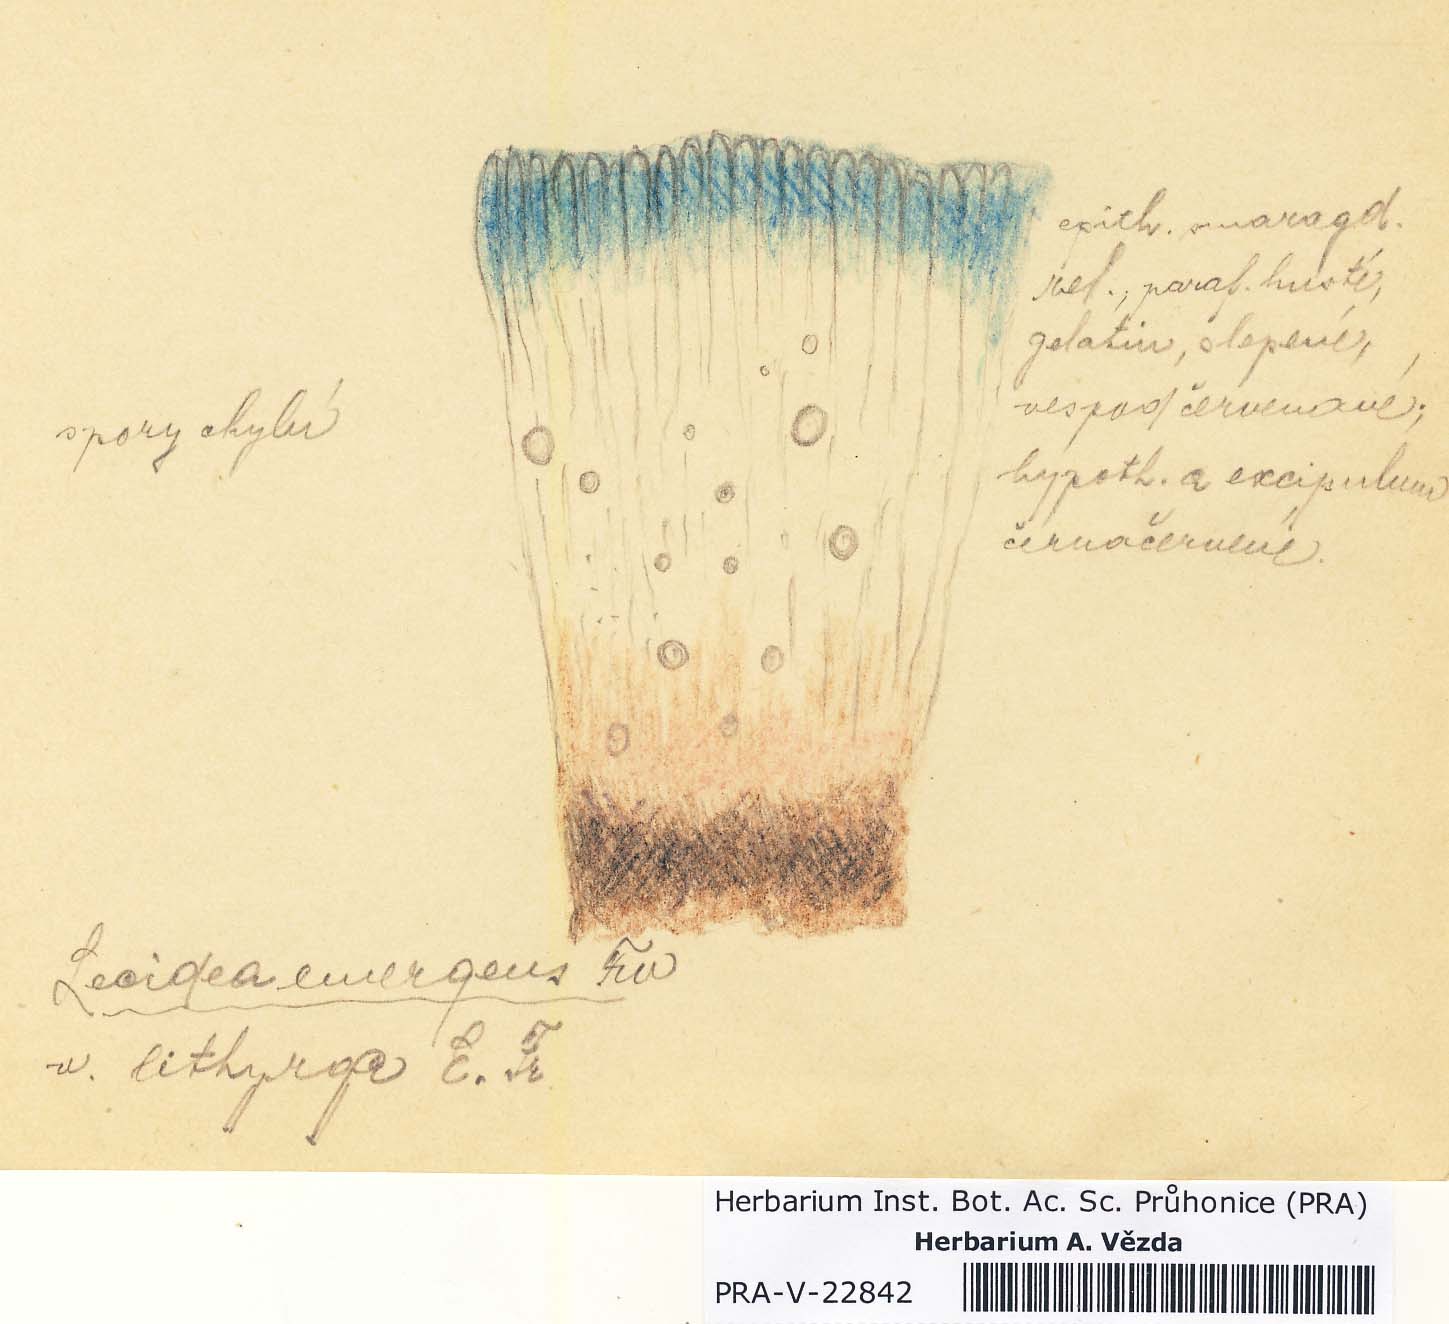 epith. smaragd.
zel.; paraf. husté,
gelatin, slepené,
vespod červenavé;
hypoth. a excipulum
černočervené.
spory chybí
Lecidea emergens Fw
v. lithyrga E. Fr
Herbarium Inst. Bot. Ac. Sc. Průhonice (PRA)
Herbarium A. Vězda
PRA-V-22842